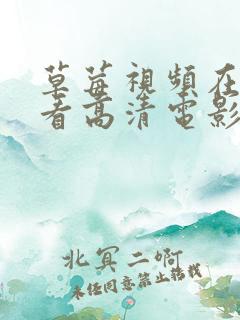 草莓視頻在
看高清電影
北冥二啊
未经同意禁止转载